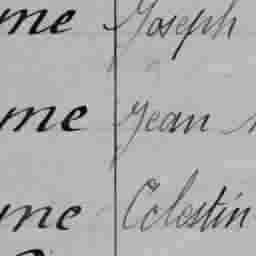 me Joseph
me Jean
me Celestin